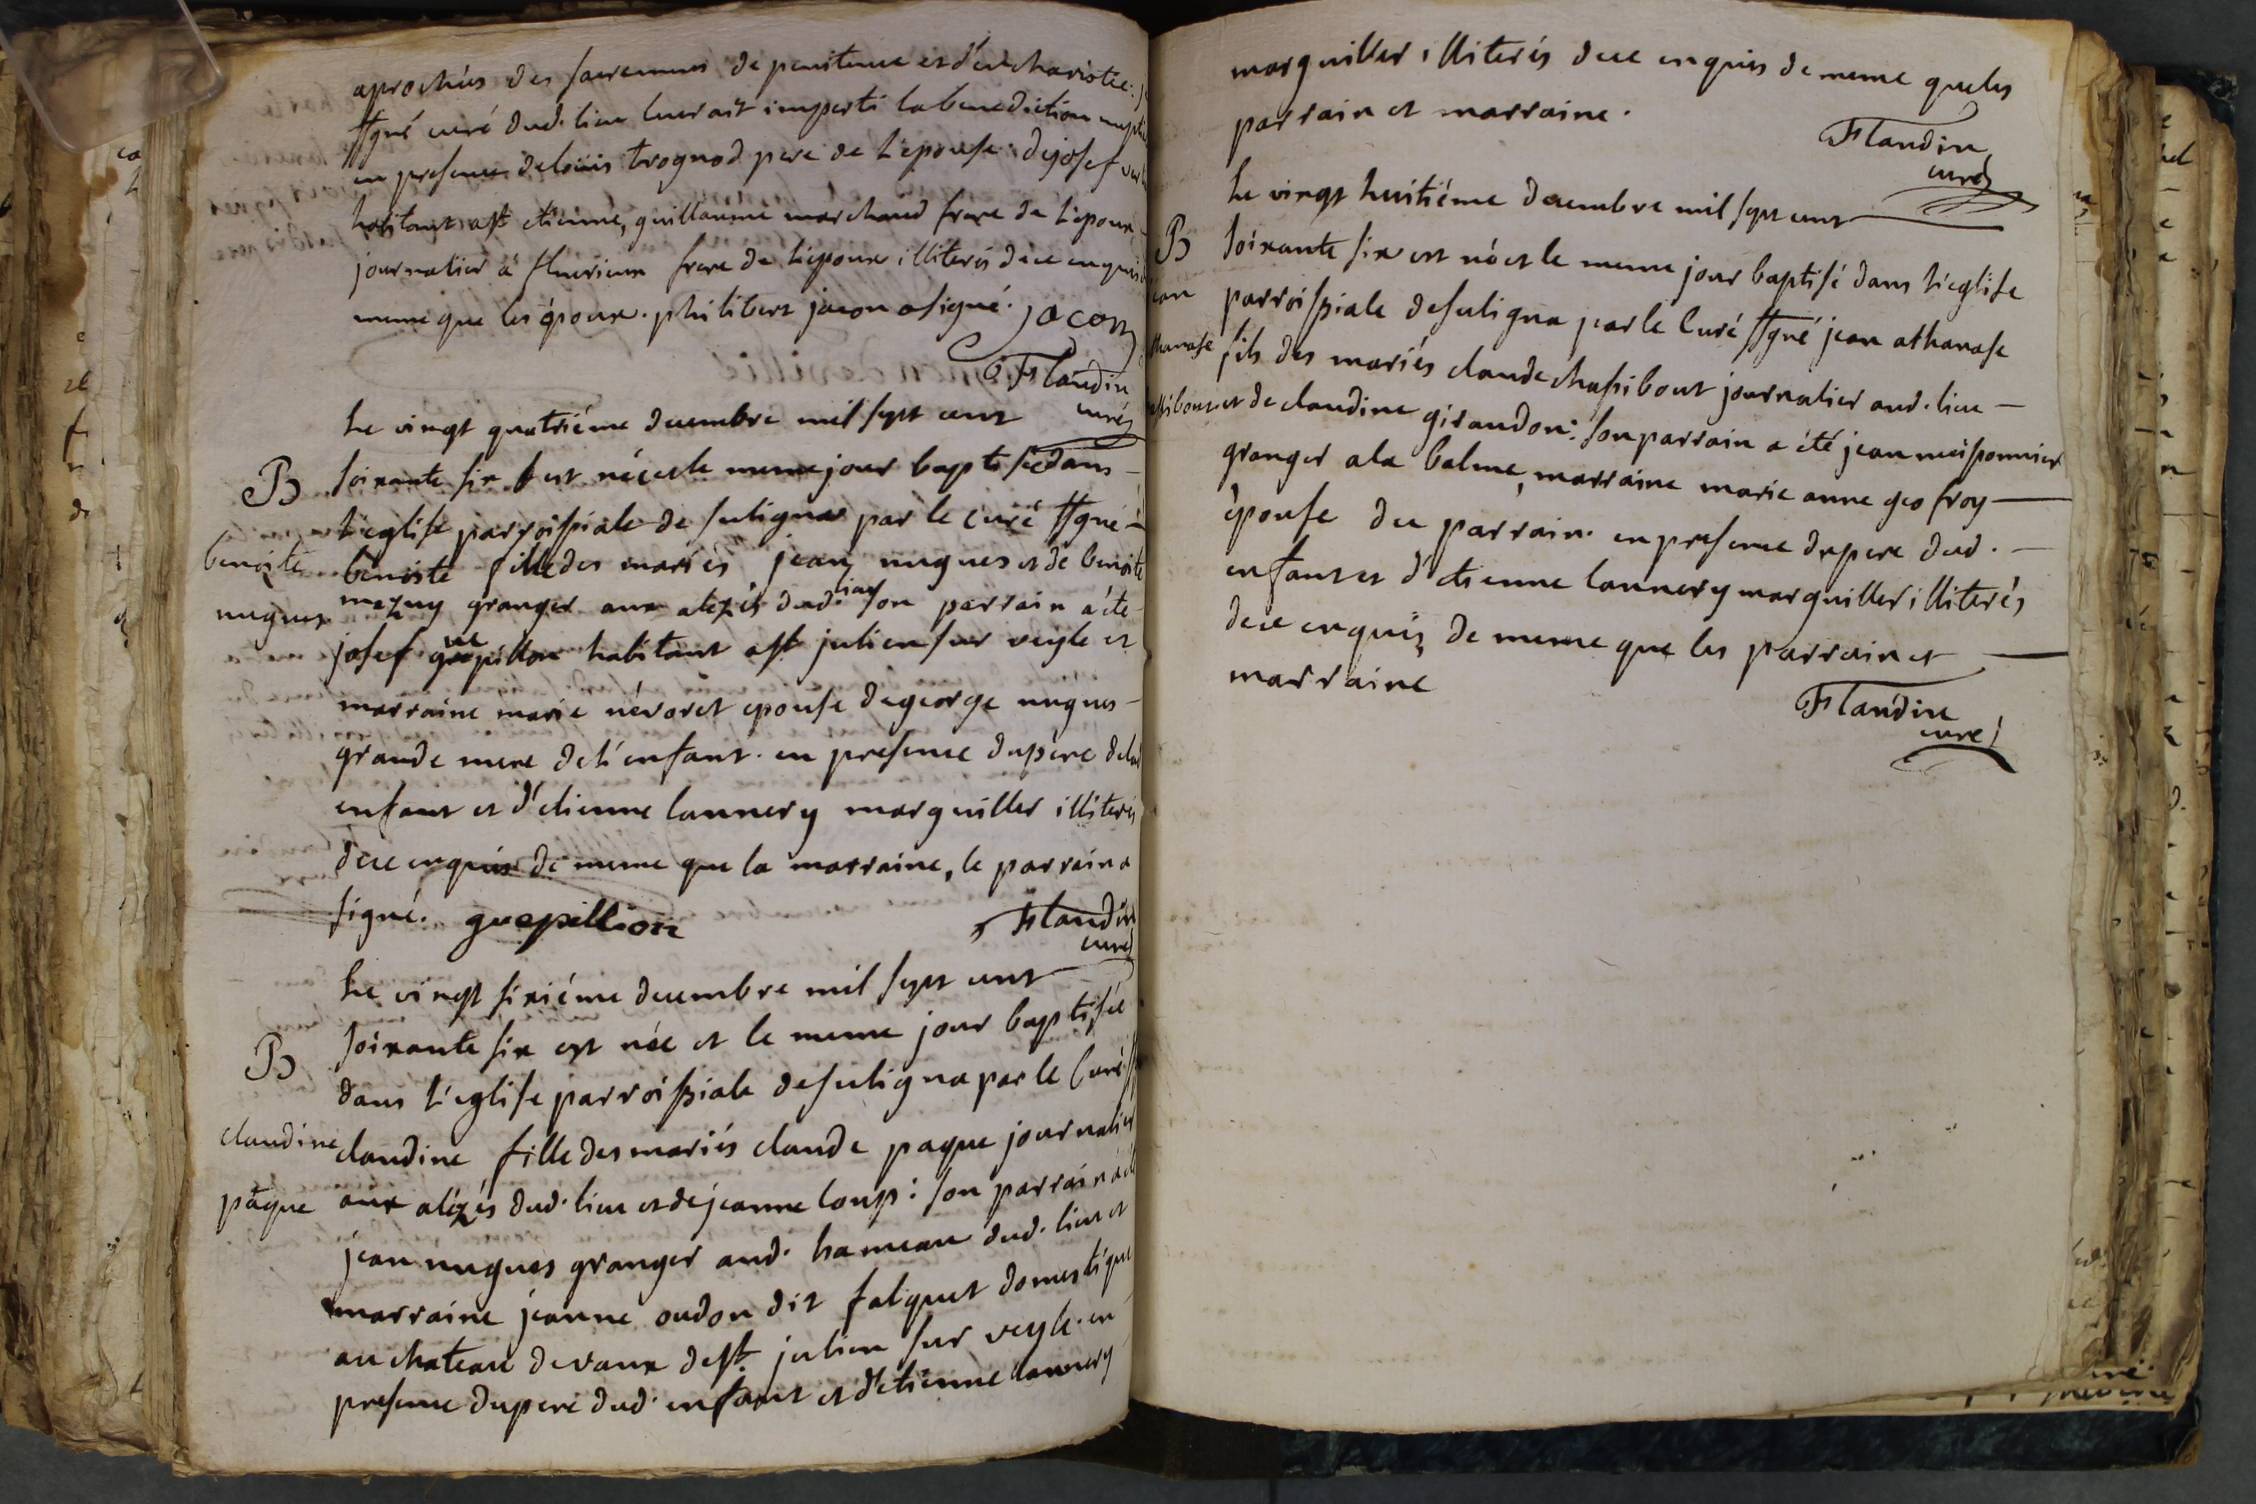 aprochés des sacremens de penitence et d'eucharistie. j
ssgné curé dud. lieu leur ait imparti la benediction nuptia
en presence de louis trognod pere de l'epouse. de josef
habitant a st etienne, guillaume marchand frere de l'epoux
journalier à fluerieux frere de l'epoux illiterés de ce enquis
meme que les époux. philibert jacon a signé. jacon
Flandin
curé
Le vingt quatriéme decembre mil sept cent
B soixante six est née et le meme jour baptisée dans
l'eglise parroissiale de suligna par le curé ssgné
benoite benoite fille des mariés jean nugues et de benoite
nugues mezuy granger aux alezés dud. lieu son parrain a été
josef guepillon habitant a st julien sur veyle et
marraine marie névoret epouse de george nugues
grande mere de l'enfant. en presence du pere delad
enfant et d'etienne lannery marguiller illiterés
de ce enquis de meme que la marraine, le parrain a
signé. guepillion Flandin
curé
Le vingt sixiéme decembre mil sept cent
soixante six est née et le meme jour baptisée
B dans l'eglise parroissiale de suligna par le Curé ss
claudine claudine fille des mariés claude paque journalier
pâque aux alézés dud. lieu et de jeanne loup: son parrain a été
jean nugues granger aud. hameau dud. lieu et
marraine jeanne oudon dit falquet domestique
au chateau de vaux de st. julien sur veyle. en
presence du pere dud. enfant et d'etienne lannery
marguiller illiterés de ce enquis de meme que les
parrain et marraine.
Flandin
curé
Le vingt huitiéme decembre mil sept cent
B soixante six est né et le meme jour baptisé dans l'eglise
jean parroissiale de suligna par le Curé ssgné jean athanase
thanase fils des mariés claude chassibout journalier aud. lieu
ssibout et de claudine giraudon: son parrain a été jean meissonnier
granger a la balme, marraine marie anne geofroy
épouse du parrain. en presence du pere dud.
enfant et d'etienne lannery marguiller illiterés
de ce enquis de meme que les parrain et
marraine
Flandin
curé